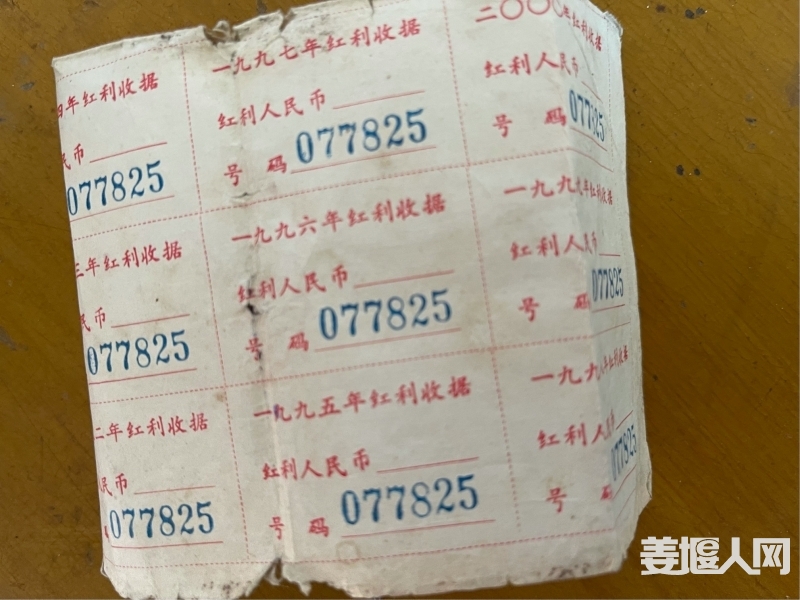 四年红利收据
民币
077825
一九九七年红利收据
红利人民币
号 码 077825
二〇〇〇年红利收据
红利人民币
号 码 077825
三年红利收据
民币
077825
一九九六年红利收据
红利人民币
号 码 077825
一九九九年红利收据
红利人民币
号 码 077825
二年红利收据
民币
077825
一九九五年红利收据
红利人民币
号 码 077825
一九九八年红利收据
红利人民币
号 码 077825
姜堰人网